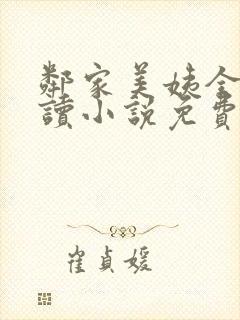 鄰家美姨全
讀小說免費
崔貞媛